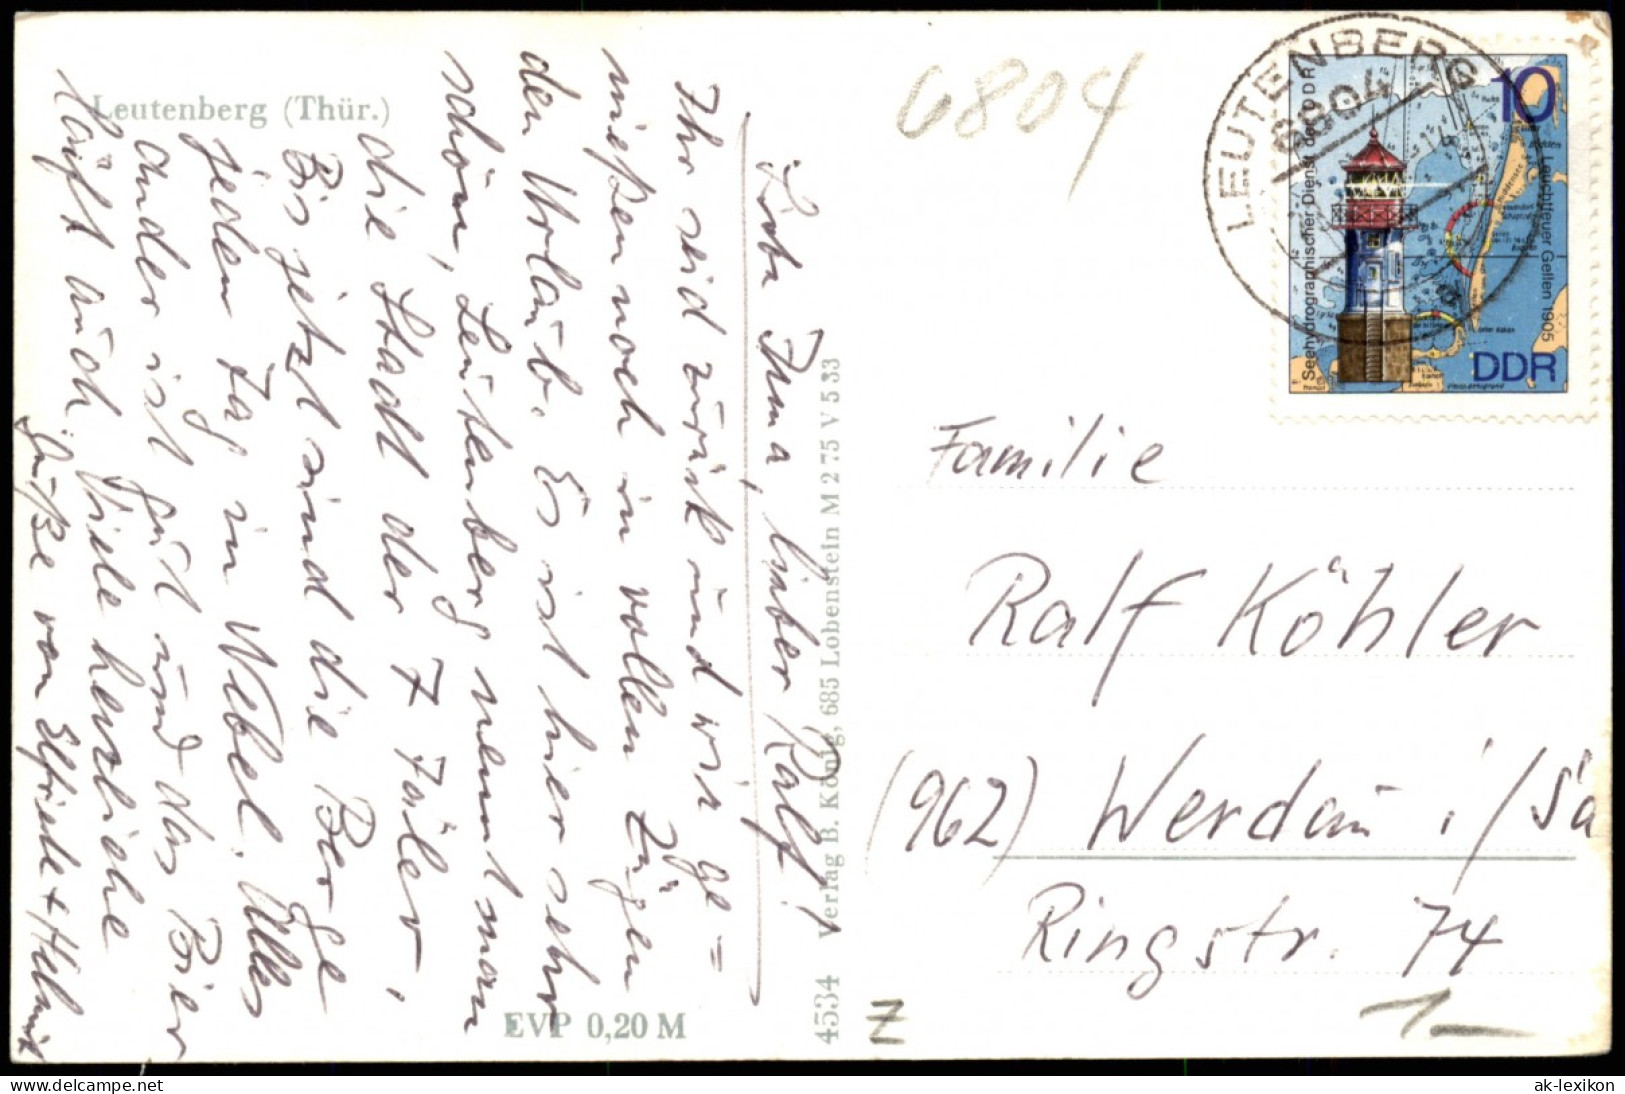 Leutenberg (Thür.)
Liebe Irma, lieber Ralf!
Ihr seid zurück und wir ge=
nießen noch in vollen Zügen
den Urlaub. Es ist hier sehr
schön, Leutenberg nennt man
die Stadt der 7 Täler,
Bis jetzt sind die Berge
jeden Tag im Nebel. Alles
ander ist gut und das Bier
läuft auch. Viele herzliche
Grüße von Elfriede + Helmut
EVP 0,20 M
4534 Verlag B. König, 685 Lobenstein M 2 75 V 5 33
6804
LEUTENBERG
6804
10
Seehydrographischer Dienst der DDR
Leuchtfeuer Gellen 1905
DDR
Familie
Ralf Köhler
(962) Werdau i/Sa
Ringstr. 74
Z
1-
www.delcampe.net
ak-lexikon